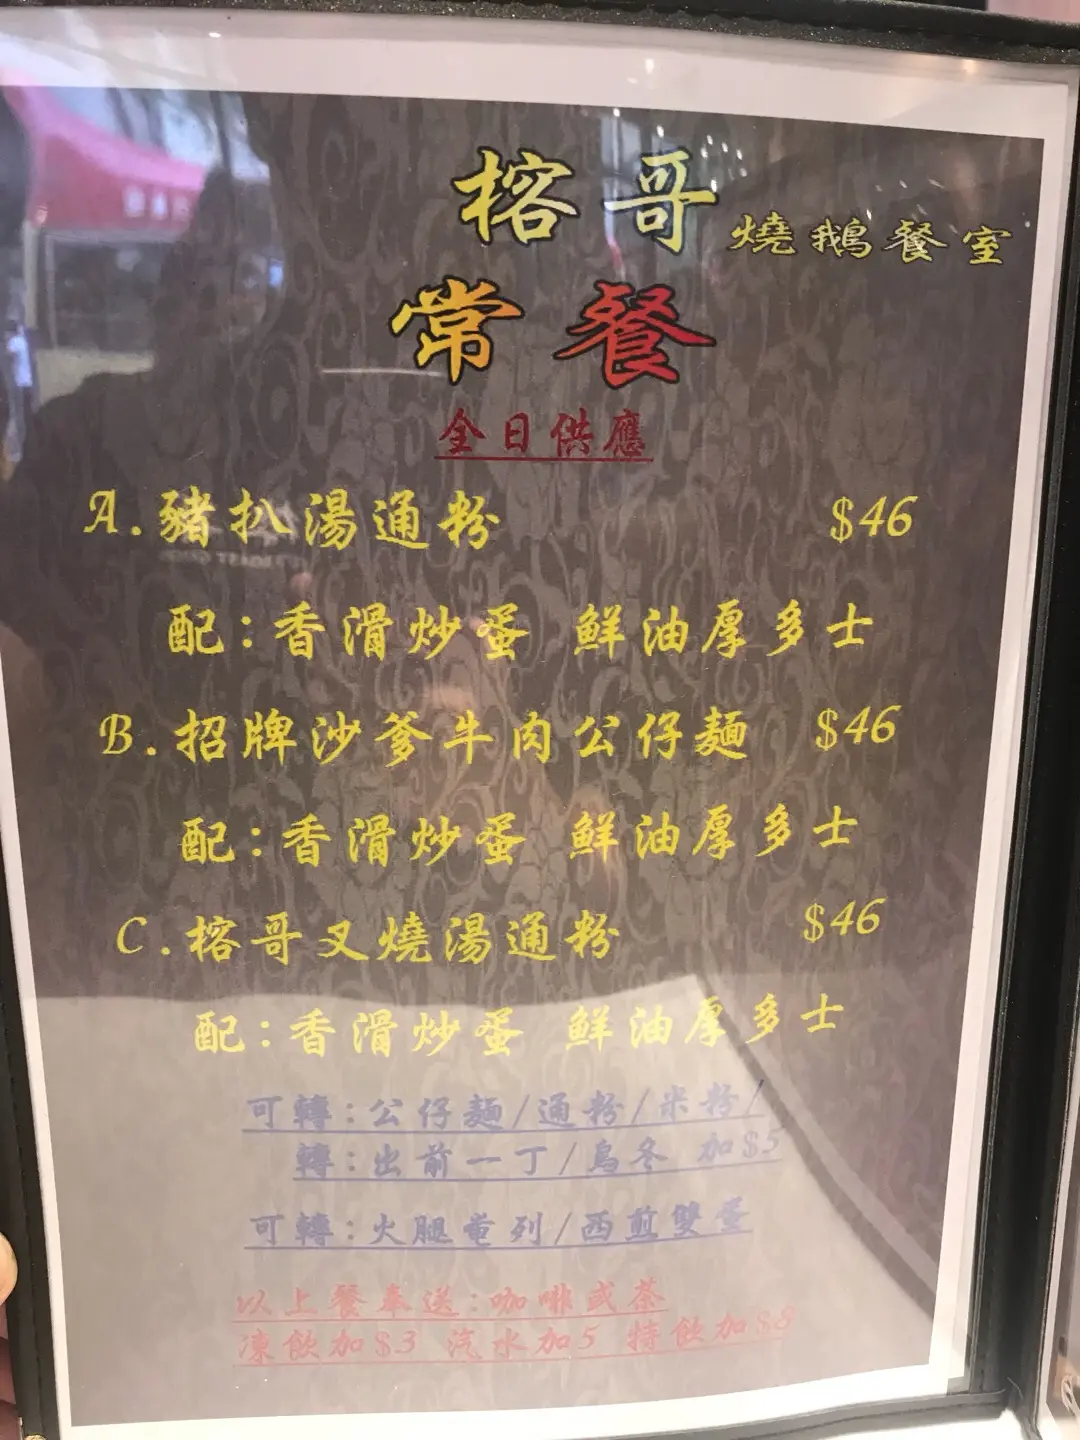 榕哥 燒鵝餐室
常餐
全日供應
A.豬扒湯通粉 $46
配:香滑炒蛋 鮮油厚多士
B.招牌沙爹牛肉公仔麵 $46
配:香滑炒蛋 鮮油厚多士
C.榕哥叉燒湯通粉 $46
配:香滑炒蛋 鮮油厚多士
可轉:公仔麵/通粉/米粉/
轉:出前一丁/烏冬 加$5
可轉:火腿奄列/西煎雙蛋
以上餐奉送:咖啡或茶
凍飲加$3 汽水加5 特飲加$8